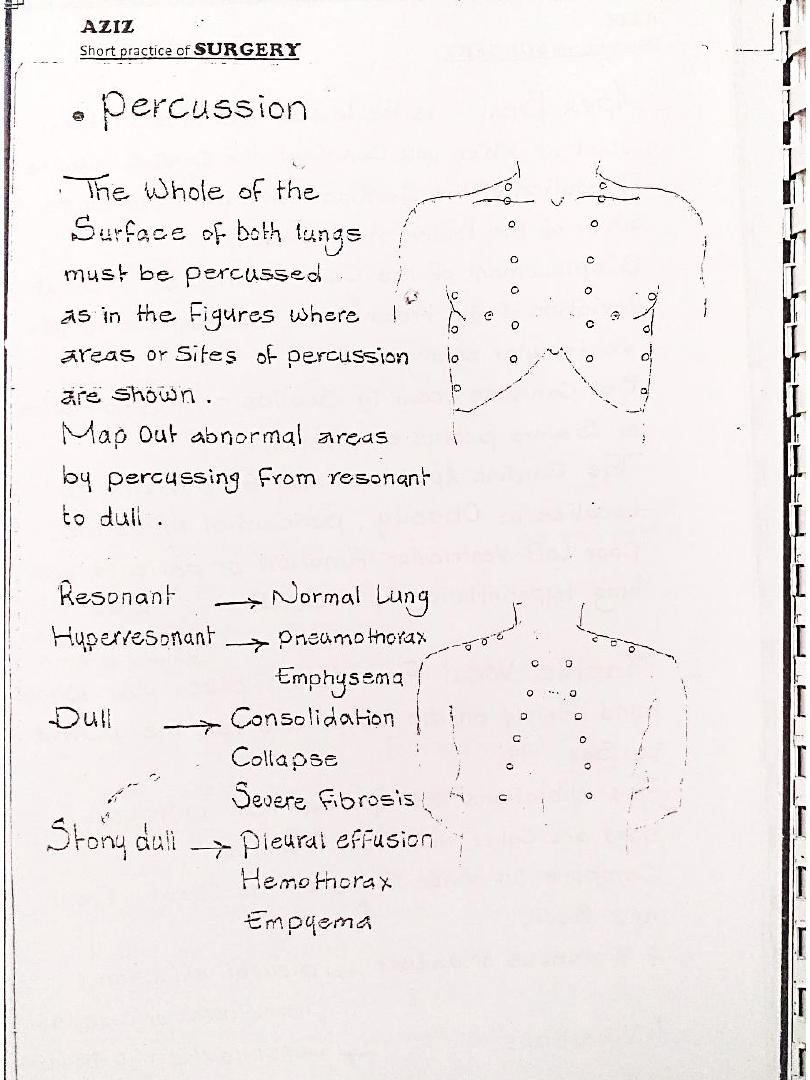 AZIZ
Short practice of SURGERY
• Percussion
The Whole of the
Surface of both lungs
must be percussed
as in the Figures where
areas or Sites of percussion
are shown.
Map Out abnormal areas
by percussing from resonant
to dull.
Resonant → Normal Lung
Hyperresonant → Pneumothorax
Emphysema
Dull → Consolidation
Collapse
Severe Fibrosis
Stony dull → Pleural effusion
Hemothorax
Empyema